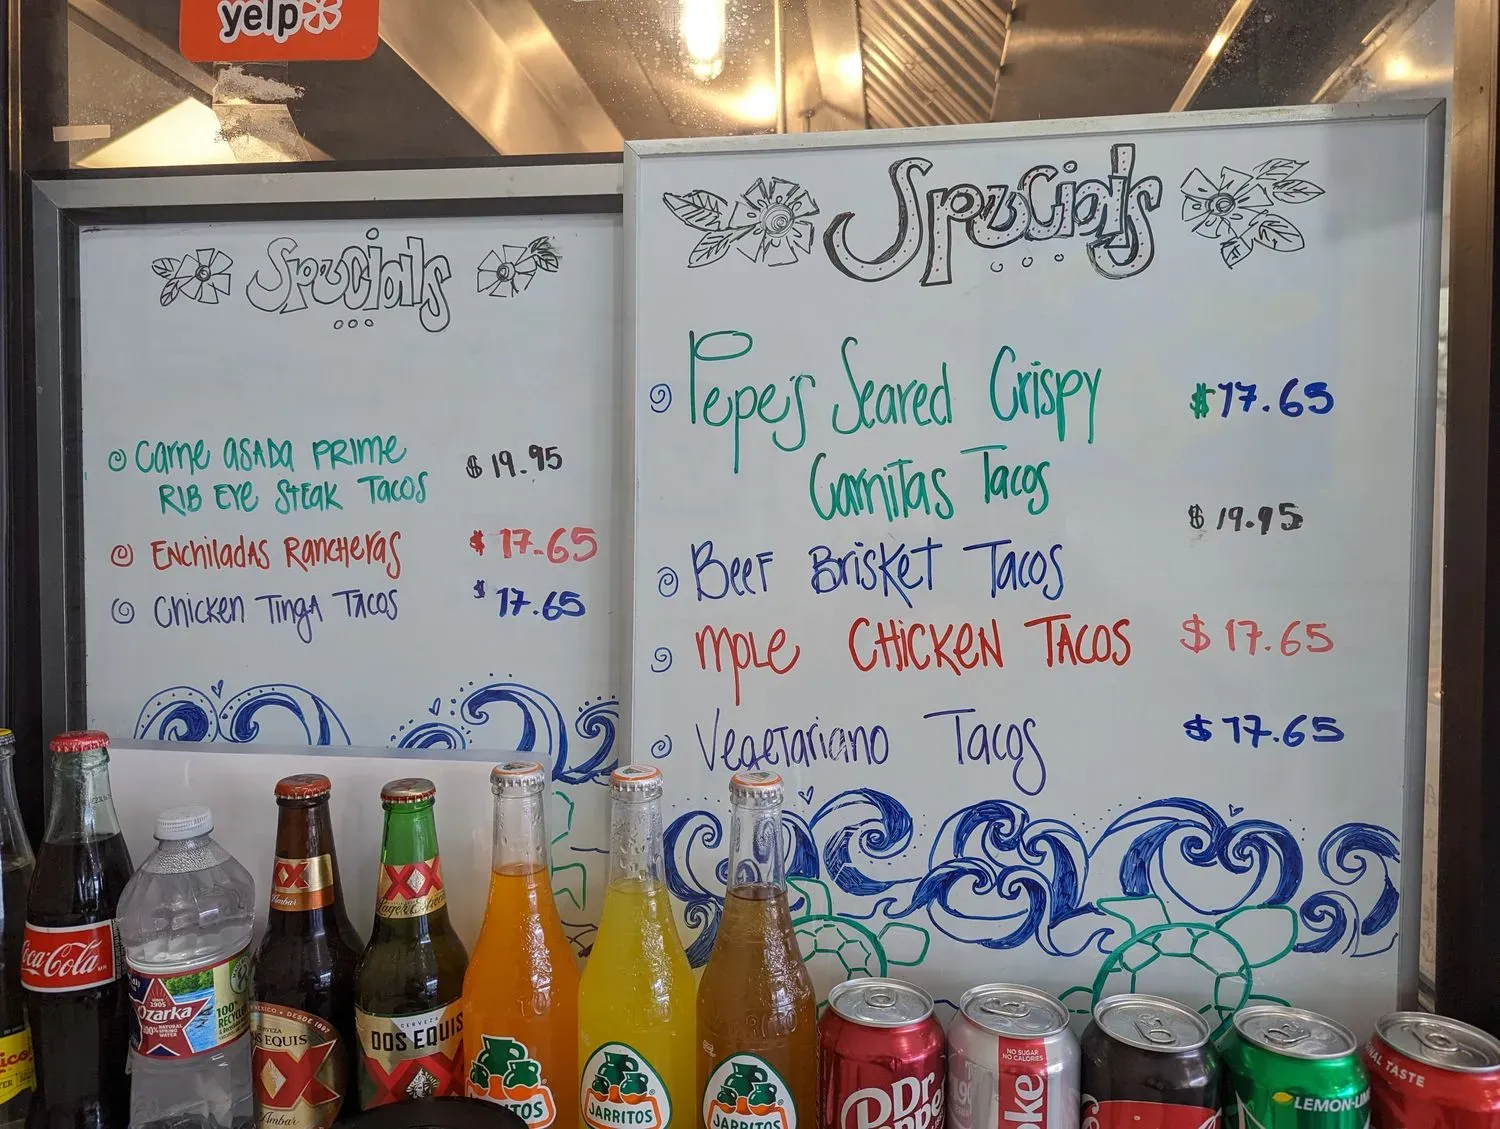 yelp
Specials
Carne asada Prime $19.95
Rib Eye Steak Tacos
Enchiladas Rancheras $17.65
Chicken Tinga Tacos $17.65
Specials
Pepe's Seared Crispy $17.65
Carnitas Tacos
$19.95
Beef Brisket Tacos
mole Chicken Tacos $17.65
Vegetariano Tacos $17.65
Coca-Cola
since 1905
Ozarka
100% NATURAL SPRING WATER
100%
DESDE 1897
CERVEZA
XX
Ambar
XX
CERVEZA
DOS EQUIS
XX
JARRITOS
JARRITOS
Dr
NO SUGAR
NO CALORIES
oke
LEMON-LIM
NAL TASTE